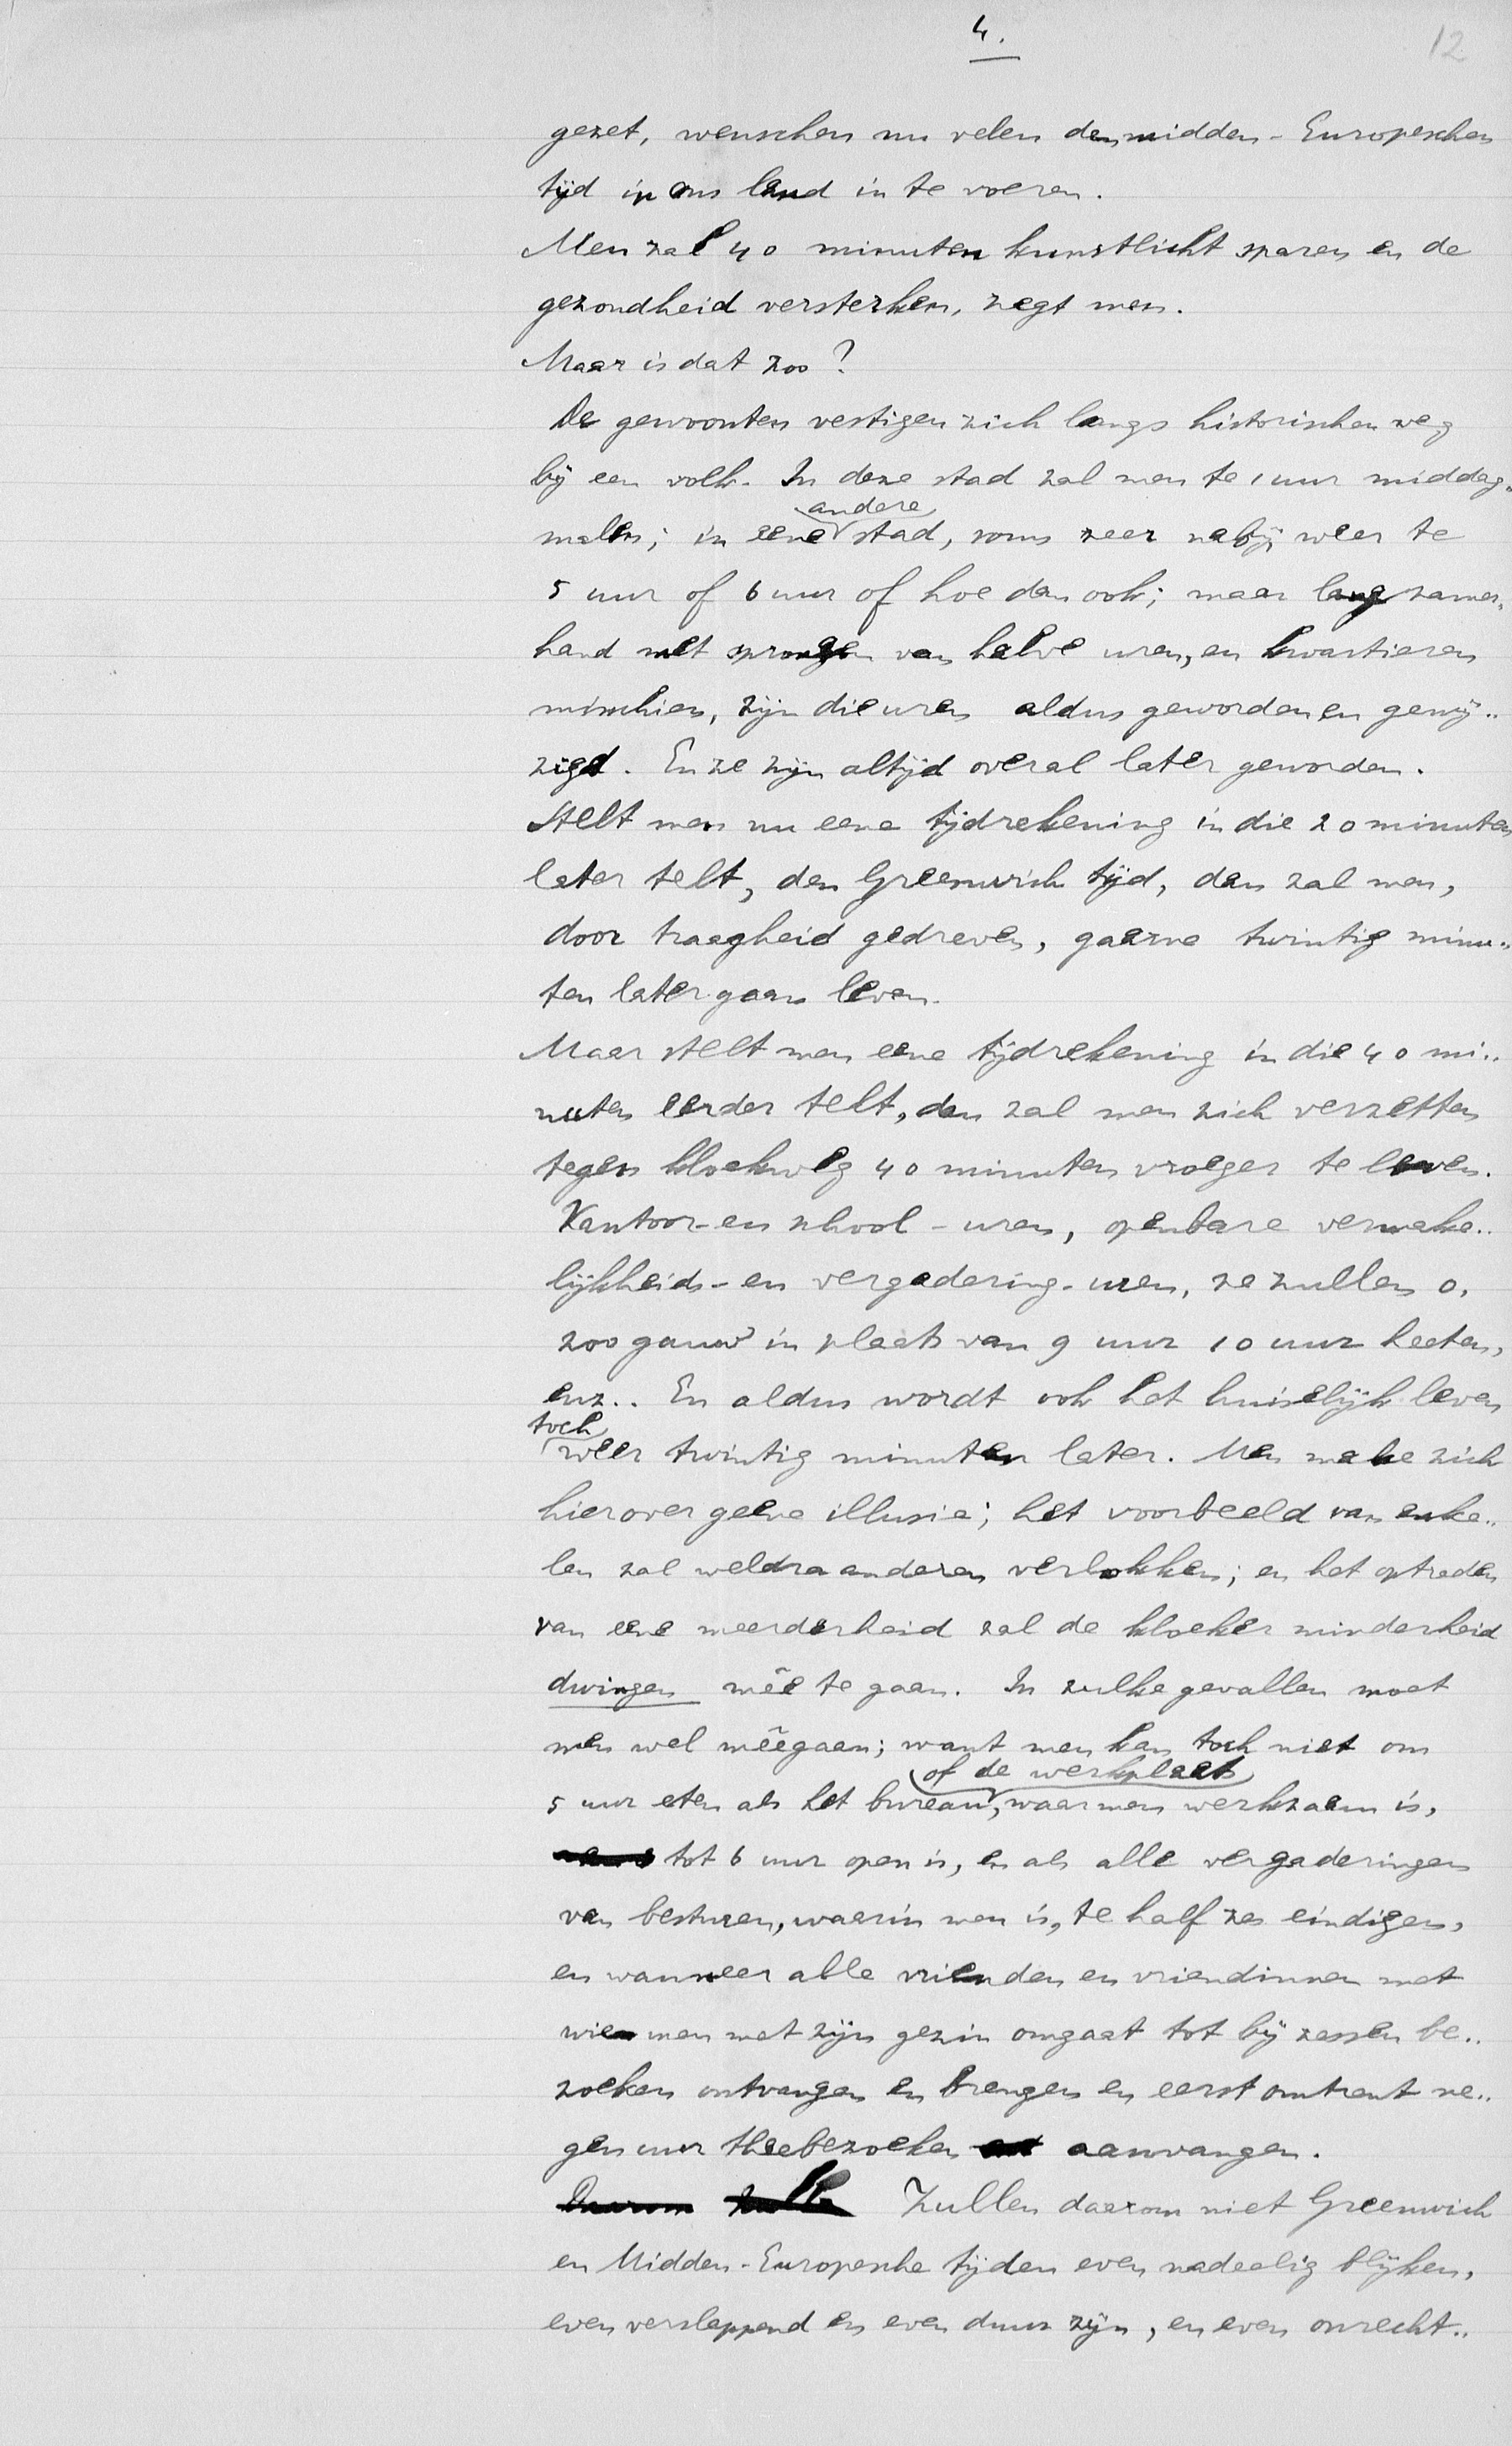 4.
12
gezet, wenschen nu velen den midden-Europeschen
tijd in ons land in te voeren.
Men zal 40 minuten kunstlicht sparen en de
gezondheid versterken, zegt men.
Maar is dat zoo?
De gewoonten vestigen zich langs historischen weg
bij een volk. In deze stad zal men te 1 uur middag-
andere
malen; in eene stad, soms zeer nabij weer te
5 uur of 6 uur of hoe dan ook; maar langzamer-
hand met sprongen van halve uren, en kwartieren
misschien, zijn die uren aldus geworden en gewij..
zigd. En ze zijn altijd overal later geworden.
Stelt men nu eene tijdrekening in die 20 minuten
later telt, den Greenwich tijd, dan zal men,
door traagheid gedreven, gaarne twintig minu..
ten later gaan leven.
Maar stelt men eene tijdrekening in die 40 mi..
nuten eerder telt, dan zal men zich verzetten
tegen kloekweg 40 minuten vroeger te leven.
Kantoor- en school-uren, openbare vermake..
lijkheids- en vergadering-uren, ze zullen o,
zoo gauw in plaats van 9 uur 10 uur heeten,
enz.. En aldus wordt ook het huiselijk leven
toch
weer twintig minuten later. Men make zich
hierover geene illusie; het voorbeeld van enke..
len zal weldra anderen verlokken; en het optreden
van eene meerderheid zal de kloeker minderheid
dwingen mêe te gaan. In zulke gevallen moet
men wel mêegaan; want men kan toch niet om
of de werkplaats
5 uur eten als het bureau, waar men werkzaam is,
tot 6 uur open is, en als alle vergaderingen
van besturen, waarin men is, te half zes eindigen,
en wanneer alle vrienden en vriendinnen met
wien men met zijn gezin omgaat tot bij zessen be..
zoeken ontvangen en brengen en eerst omtrent ne..
gen uur theebezoeken aanvangen.
Zullen daarom niet Greenwich
en Midden-Europesche tijden even nadeelig blijken,
even versleppend en even duur zijn, en even onrecht..